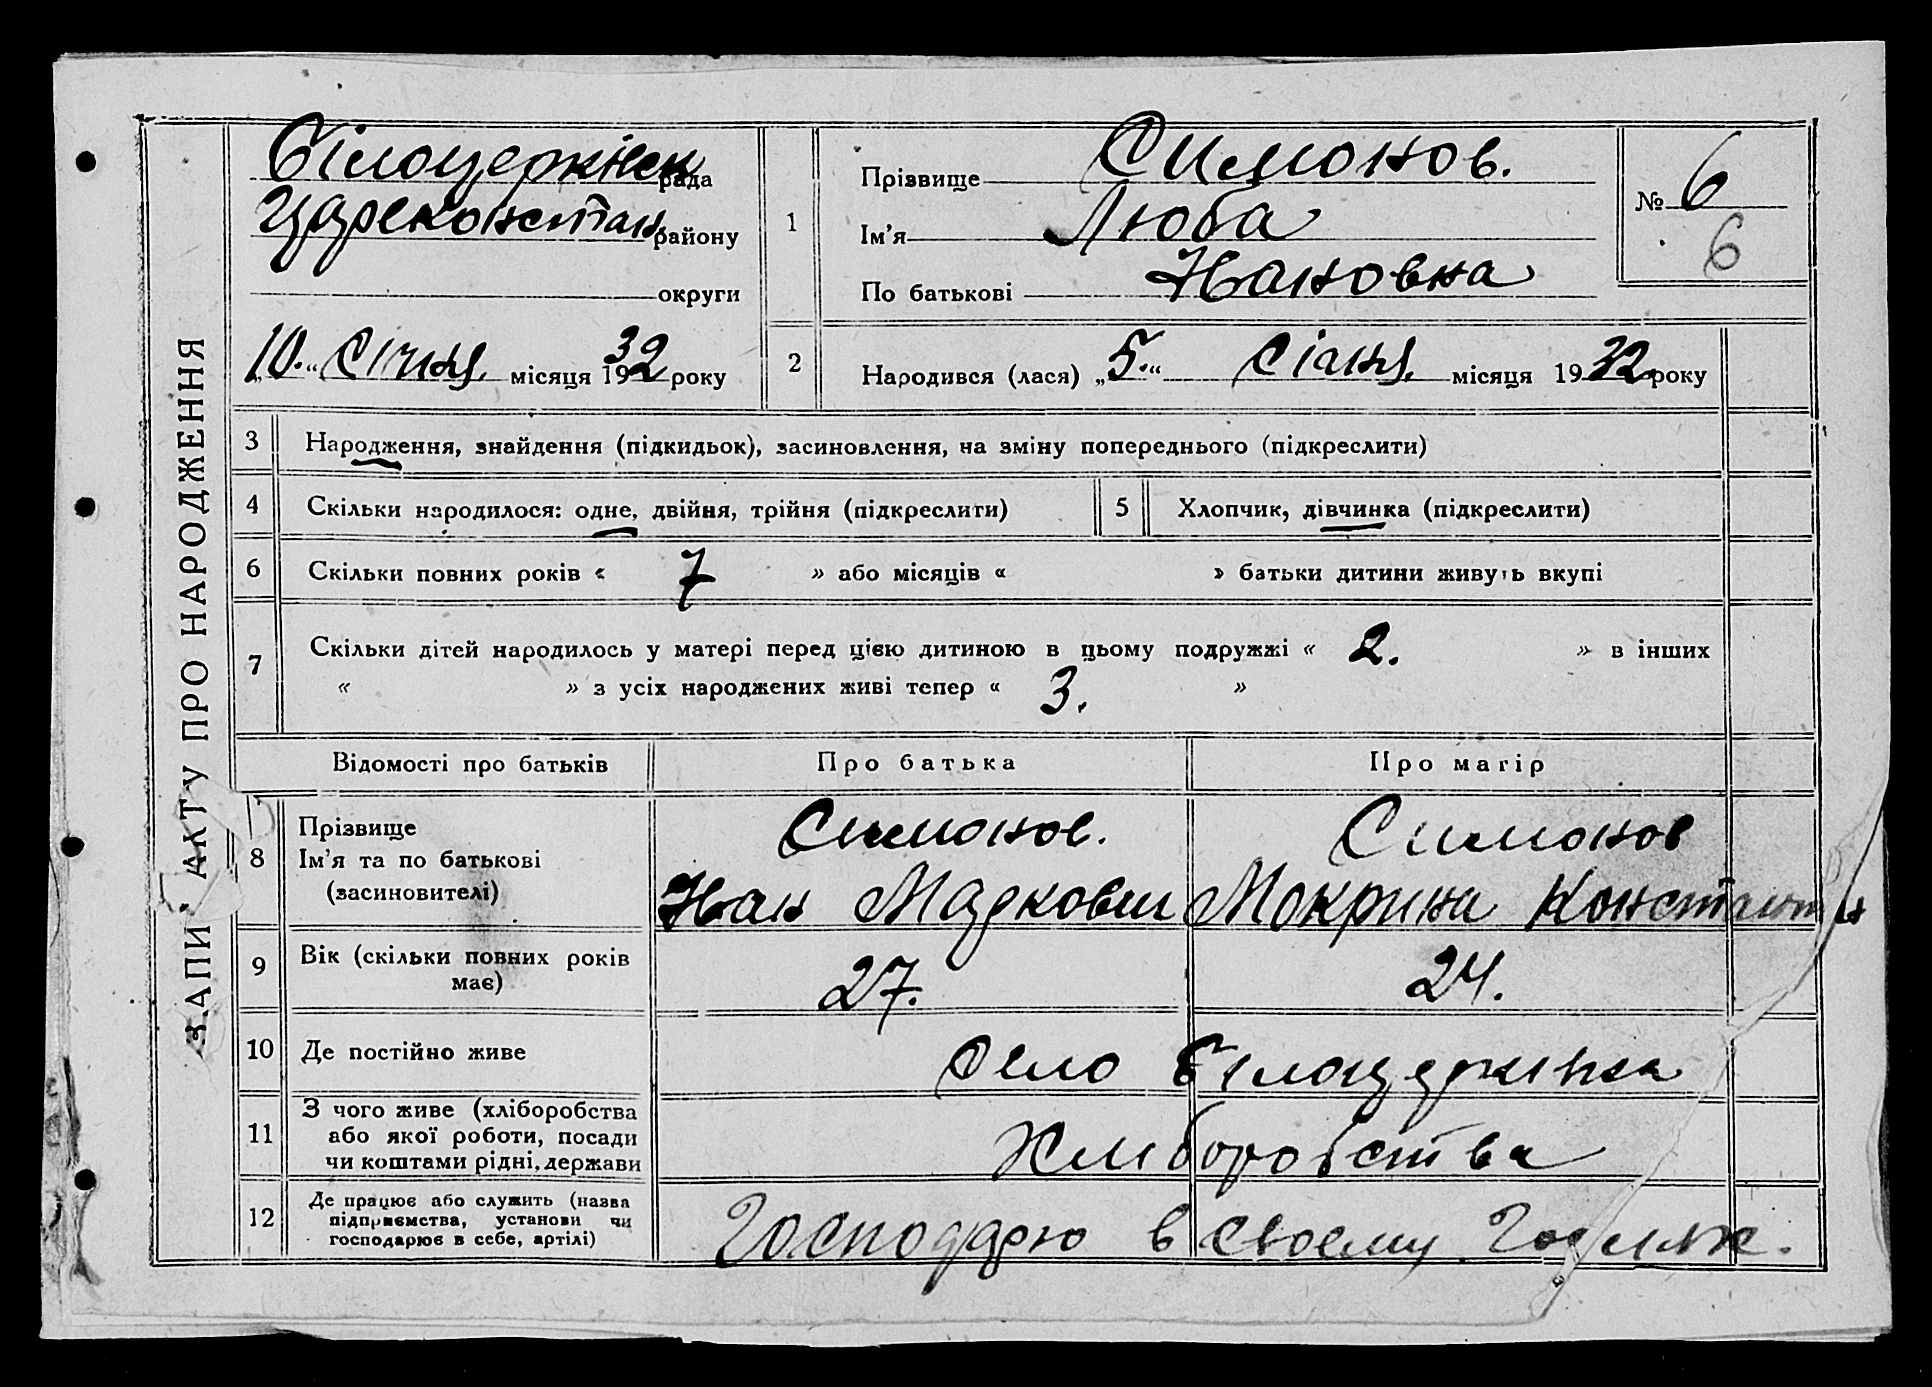 ЗАПИС АКТУ ПРО НАРОДЖЕННЯ
Білоцерківськ рада
Цареконстан. району
округи
"10." Січня місяця 1932 року
1
Прізвище Симонов.
Ім'я Люба
По батькові Ивановна
№ 6
6
2
Народився (лася) „5.“ Січня, місяця 1932. року
3 Народження, знайдення (підкидьок), засиновлення, на зміну попереднього (підкреслити)
4 Скільки народилося: одне, двійня, трійня (підкреслити)
5 Хлопчик, дівчинка (підкреслити)
6 Скільки повних років « 7 » або місяців « » батьки дитини живуть вкупі
7 Скільки дітей народилось у матері перед цією дитиною в цьому подружжі « 2. » в інших
« » з усіх народжених живі тепер « 3. »
Відомості про батьків
Про батька
Про матір
8
Прізвище
Ім'я та по батькові
(засиновителі)
Симонов.
Иван Маркович
Симонов
Мокрина Константин
9
Вік (скільки повних років
має)
27.
24.
10 Де постійно живе
Село Білоцерківка
11
З чого живе (хліборобства
або якої роботи, посади
чи коштами рідні, держави
Хліборобства
12
Де працює або служить (назва
підприємства, установи чи
господарює в себе, артілі)
Господарю в своему